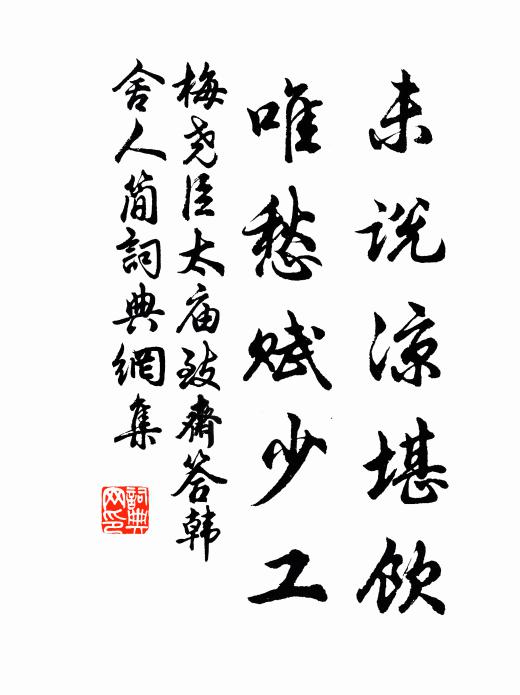 未说凉堪饮
唯愁赋少工
梅尧臣太庙致齋答韩
舍人简詞典網集
詞典网印